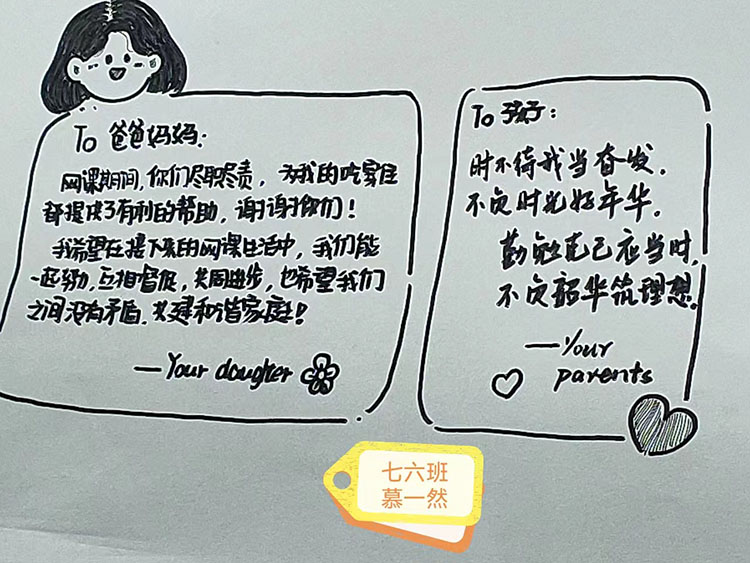 To 爸爸妈妈:
网课期间,你们尽职尽责,为我的吃穿住
都提供了有利的帮助,谢谢你们!
我希望在接下来的网课生活中,我们能
一起努力,互相督促,共同进步,也希望我们
之间没有矛盾,共建和谐家庭!
—Your daugher
To 孩子:
时不待我当奋发,
不负时光好年华.
勤勉克己应当时,
不负韶华筑理想.
—Your
parents
七六班
慕一然